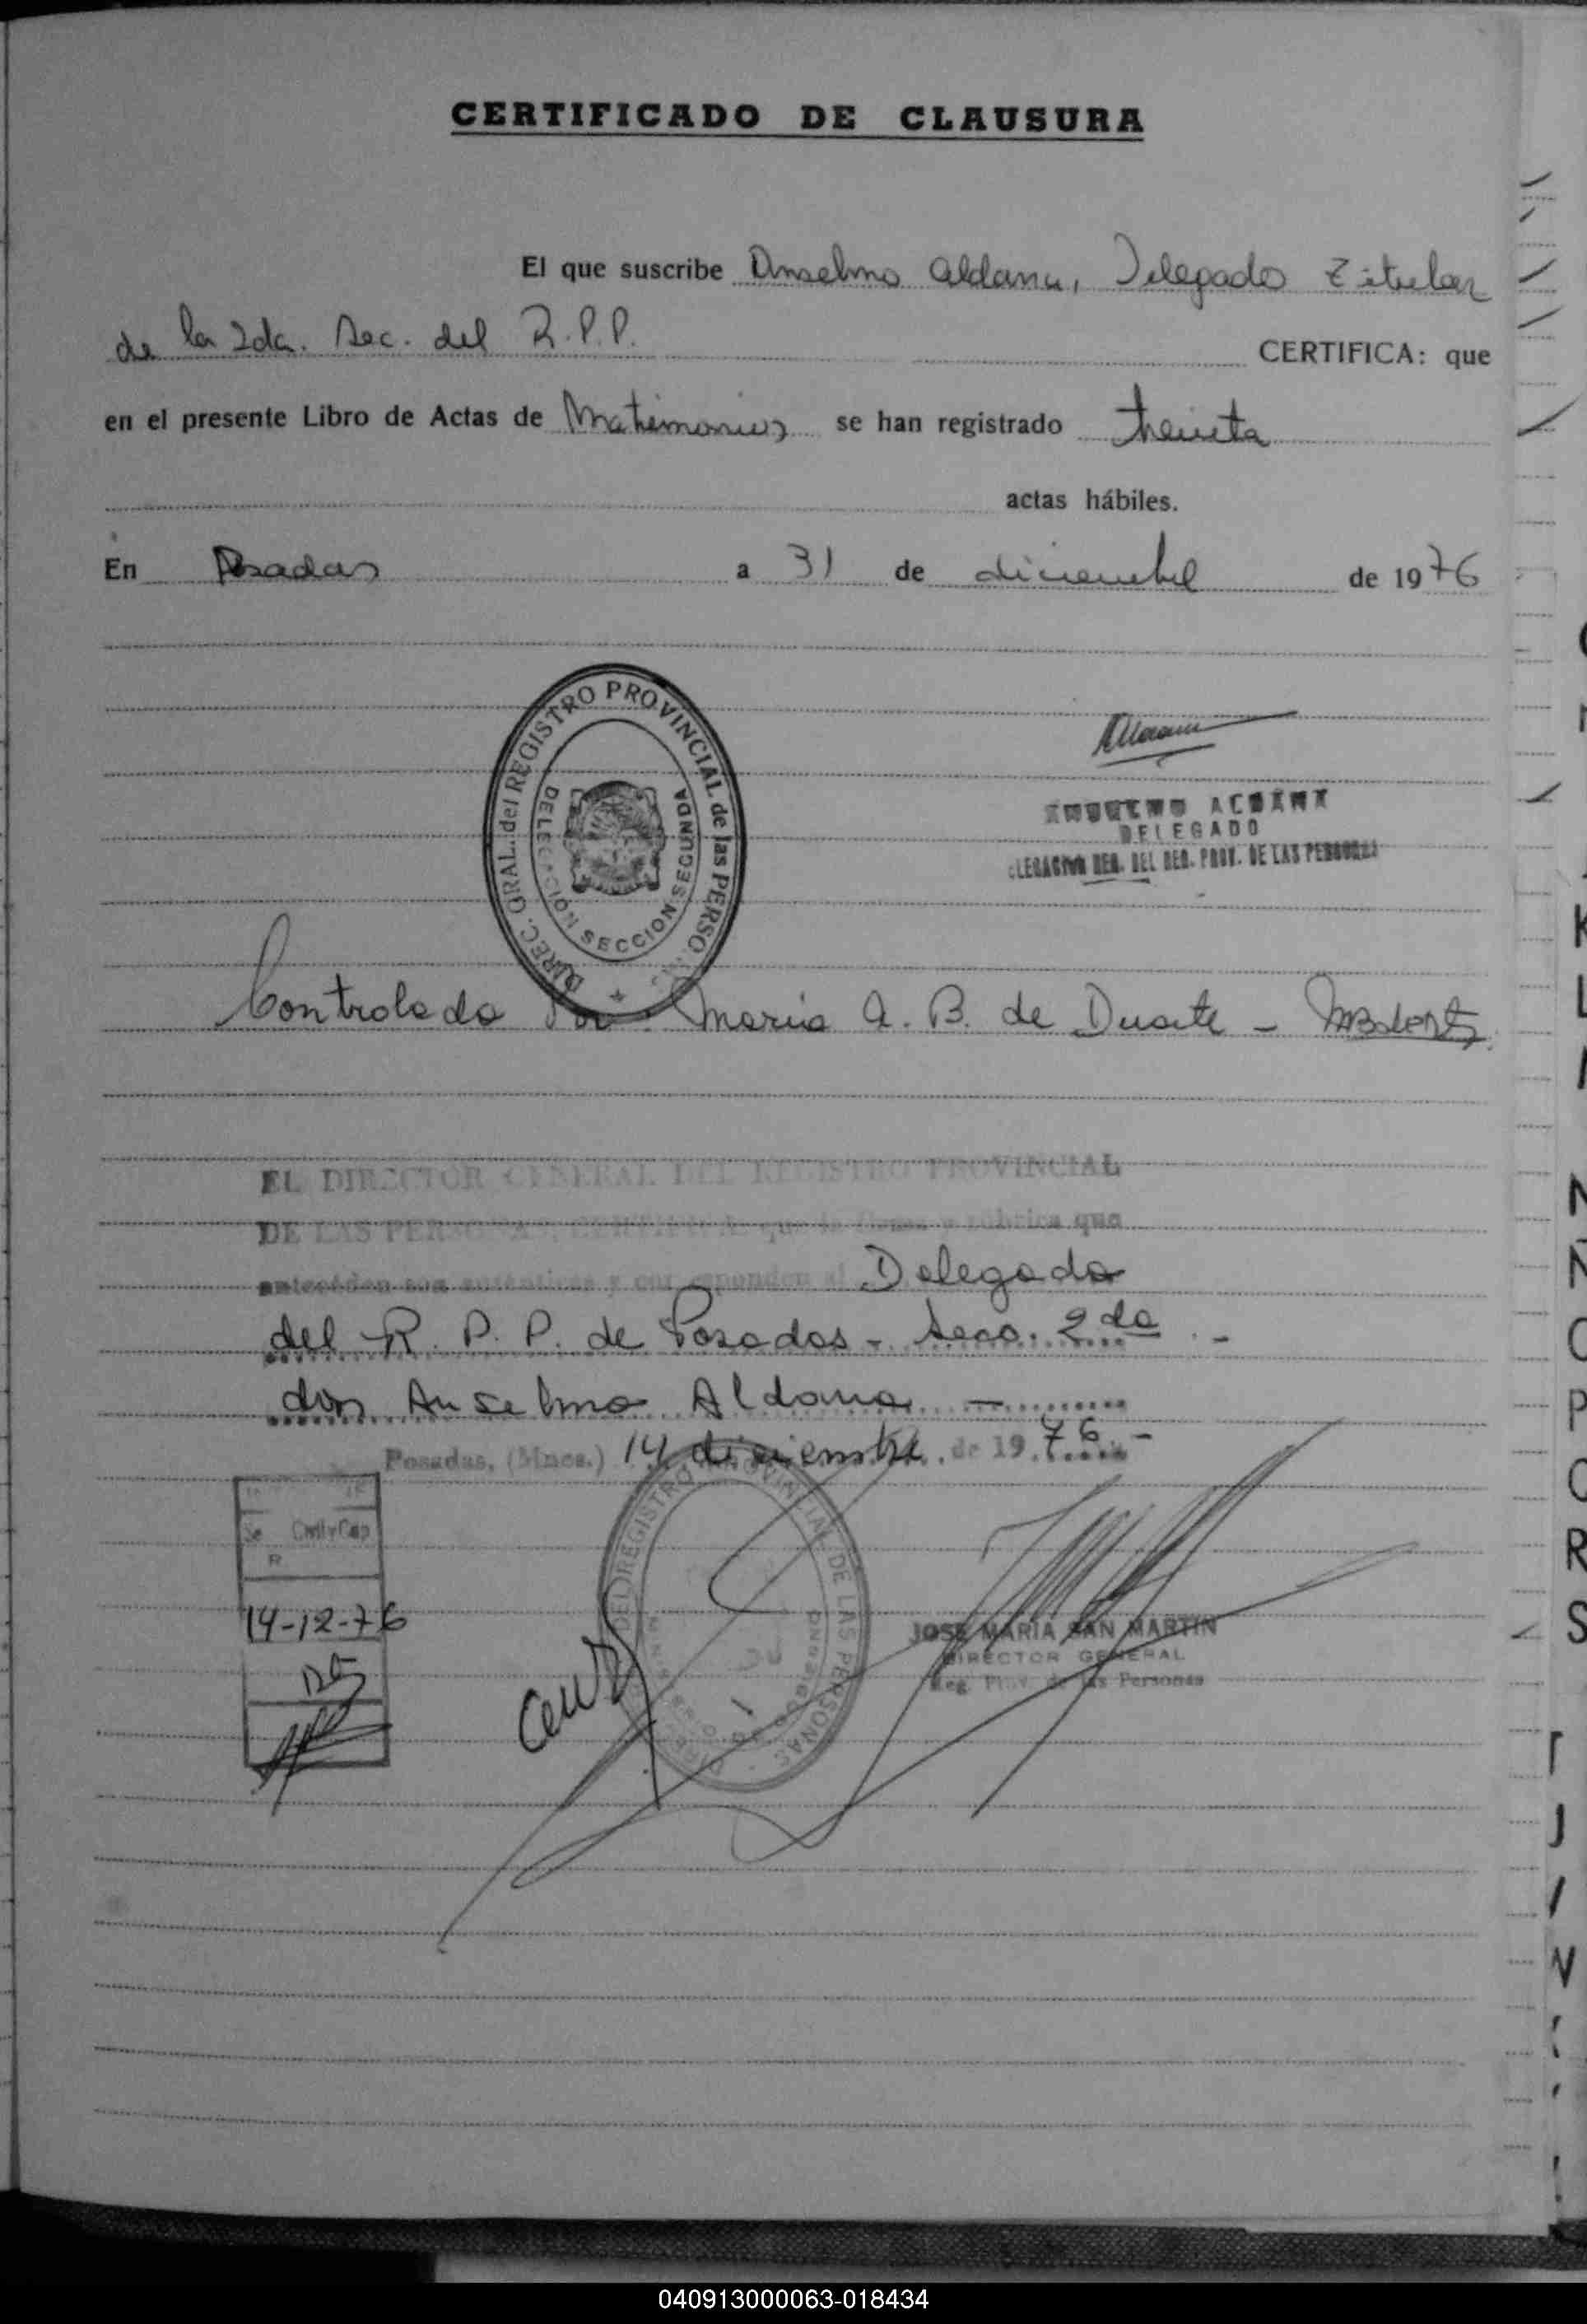 CERTIFICADO DE CLAUSURA
El que suscribe Anselmo Aldana, Delegado Titular
de la 2da. Sec. del R.P.P. CERTIFICA: que
en el presente Libro de Actas de Matrimonios se han registrado treinta
actas hábiles.
En Posadas a 31 de diciembre de 1976
DIREC. GRAL. del REGISTRO PROVINCIAL de las PERSO
DELEGACIÓN SECCION SEGUNDA
DELEGADO
DEL REG. PROV. DE LAS PERSONAS
Controlado Por: Maria A. B. de Duarte -
EL DIRECTOR GENERAL DEL REGISTRO PROVINCIAL
DE LAS PERSONAS, CERTIFICA: que la firma y rúbrica que
anteceden son auténticas y corresponden al Delegado
del R. P. P. de Posadas - Secc. 2da. -
don Anselmo Aldana. -
Posadas, (Mnes.) 14 diciembre de 19 76. -
Civil y Cap
14-12-76
REGISTRO PROVINCIAL DE LAS PERSONAS
JOSE MARIA SAN MARTIN
DIRECTOR GENERAL
Reg. Prov. de las Personas
K
L
N
Ñ
O
P
Q
R
S
040913000063-018434